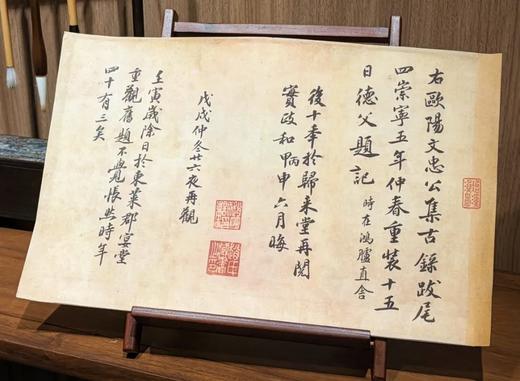 右歐陽文忠公集古錄跋尾
四崇寧五年仲春重裝十五
日德父題記 時在鴻臚直舍
後十年於歸来堂再閱
實政和甲申六月晦
戊戌仲冬廿六夜再觀
壬寅歲除日於東萊郡宴堂
重觀舊題不覺悵然時年
四十有三矣